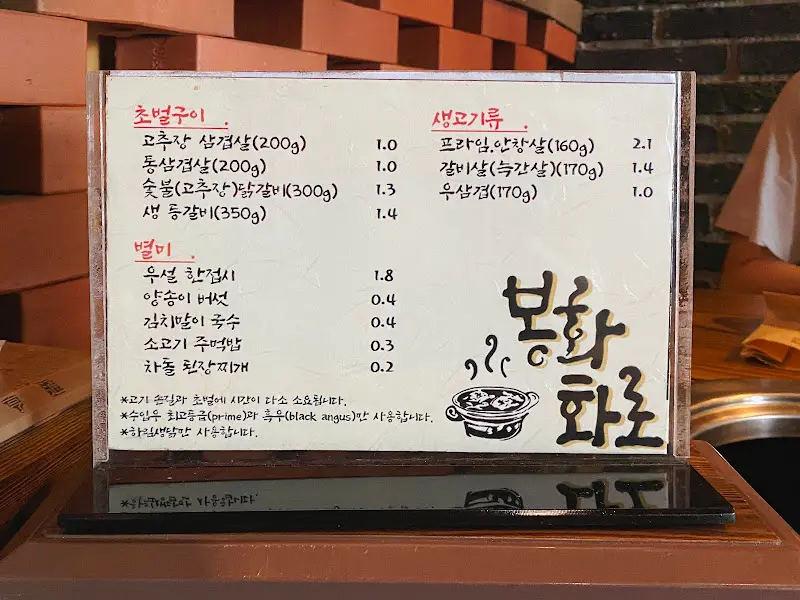 초벌구이.
고추장 삼겹살(200g) 1.0
통삼겹살(200g) 1.0
숯불(고추장)닭갈비(300g) 1.3
생 등갈비(350g) 1.4
별미.
우설 한접시 1.8
양송이 버섯 0.4
김치말이 국수 0.4
소고기 주먹밥 0.3
차돌 된장찌개 0.2
*고기 손질과 초벌에 시간이 다소 소요됩니다.
*수입우 최고등급(prime)과 흑우(black angus)만 사용합니다.
*하림생닭만 사용합니다.
생고기류.
프라임.안창살(160g) 2.1
갈비살(늑간살)(170g) 1.4
우삼겹(170g) 1.0
봉화
화로